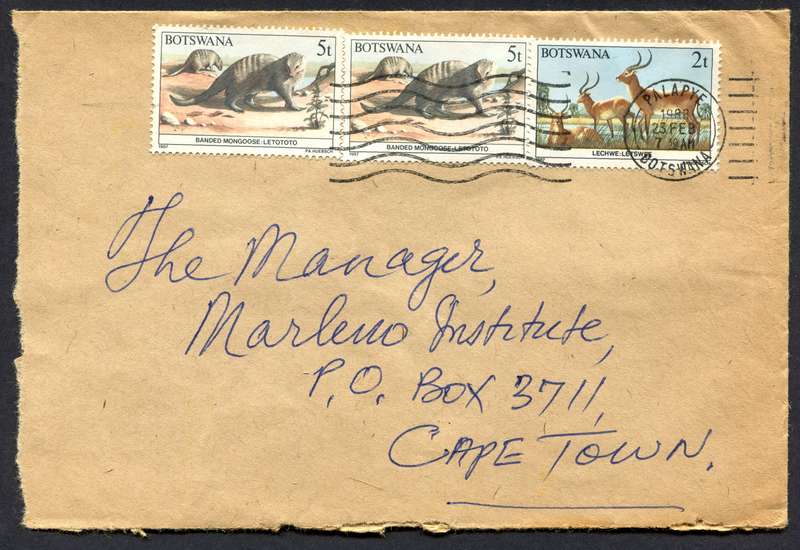 BOTSWANA 5t
BANDED MONGOOSE:LETOTOTO
1987 P.A. HUEBSCH
BOTSWANA 5t
BANDED MONGOOSE:LETOTOTO
1987 P.A. HUEBSCH
BOTSWANA 2t
LECHWE:LETSWEE
PALAPYE
23 FEB
BOTSWANA
The Manager,
Marleno Institute,
P.O. BOX 3711,
CAPE TOWN.